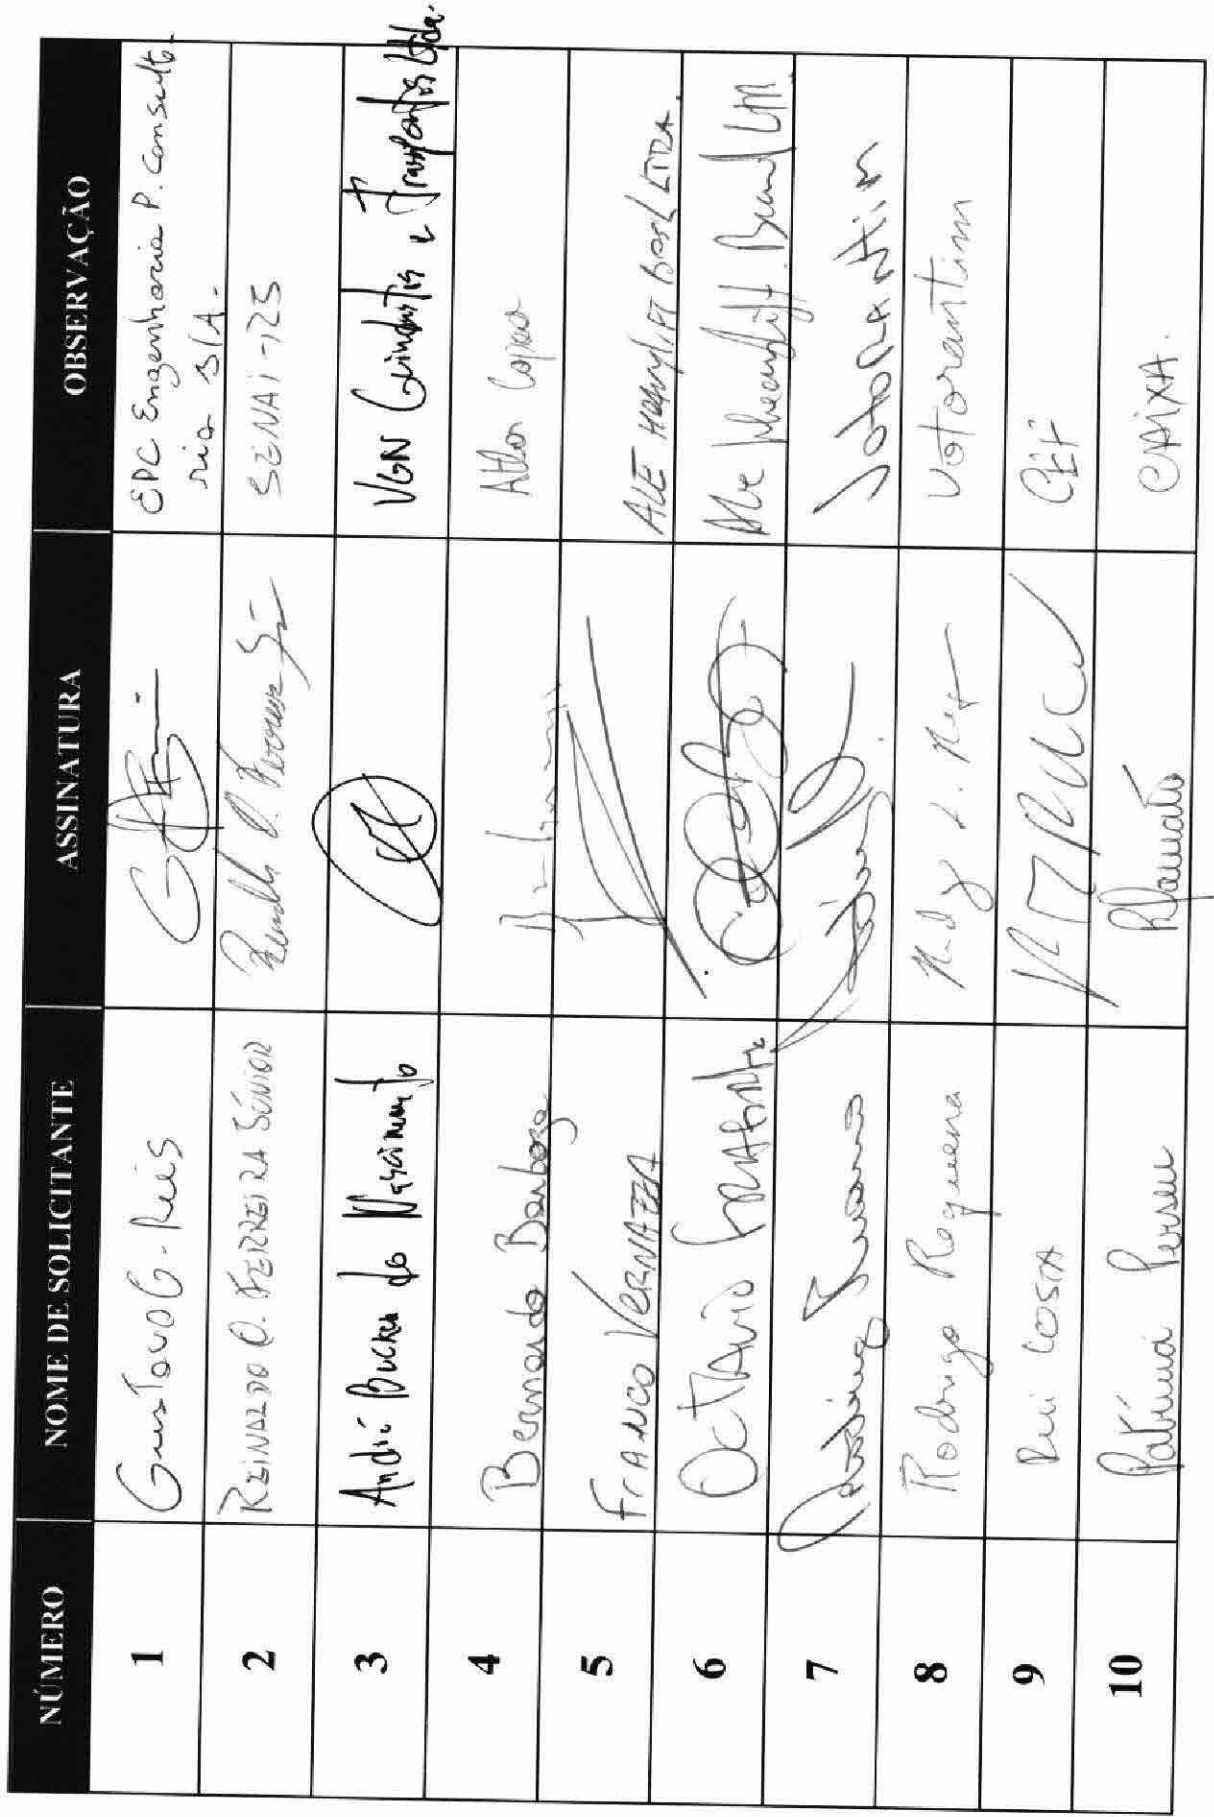 NÚMERO NOME DE SOLICITANTE ASSINATURA OBSERVAÇÃO
1 Gustavo G. Reis EPC Engenharia P. Consulto-
ria S/A.
2 REINALDO O. FERREIRA JÚNIOR SENAI-125
3 André Bucker do Nascimento VGN Guindastes e Transportes Ltda.
4 Bernardo Barboza Atlas Copco
5 FRANCO VERNAZZA ALE HEAVYLIFT BRASIL LTDA.
6 OCTAVIO Ale Heavylift Brasil
7 VOTORANTIM
8 Rodrigo Requena Votorantim
9 Rui COSTA CEF
10 Patrícia CAIXA.